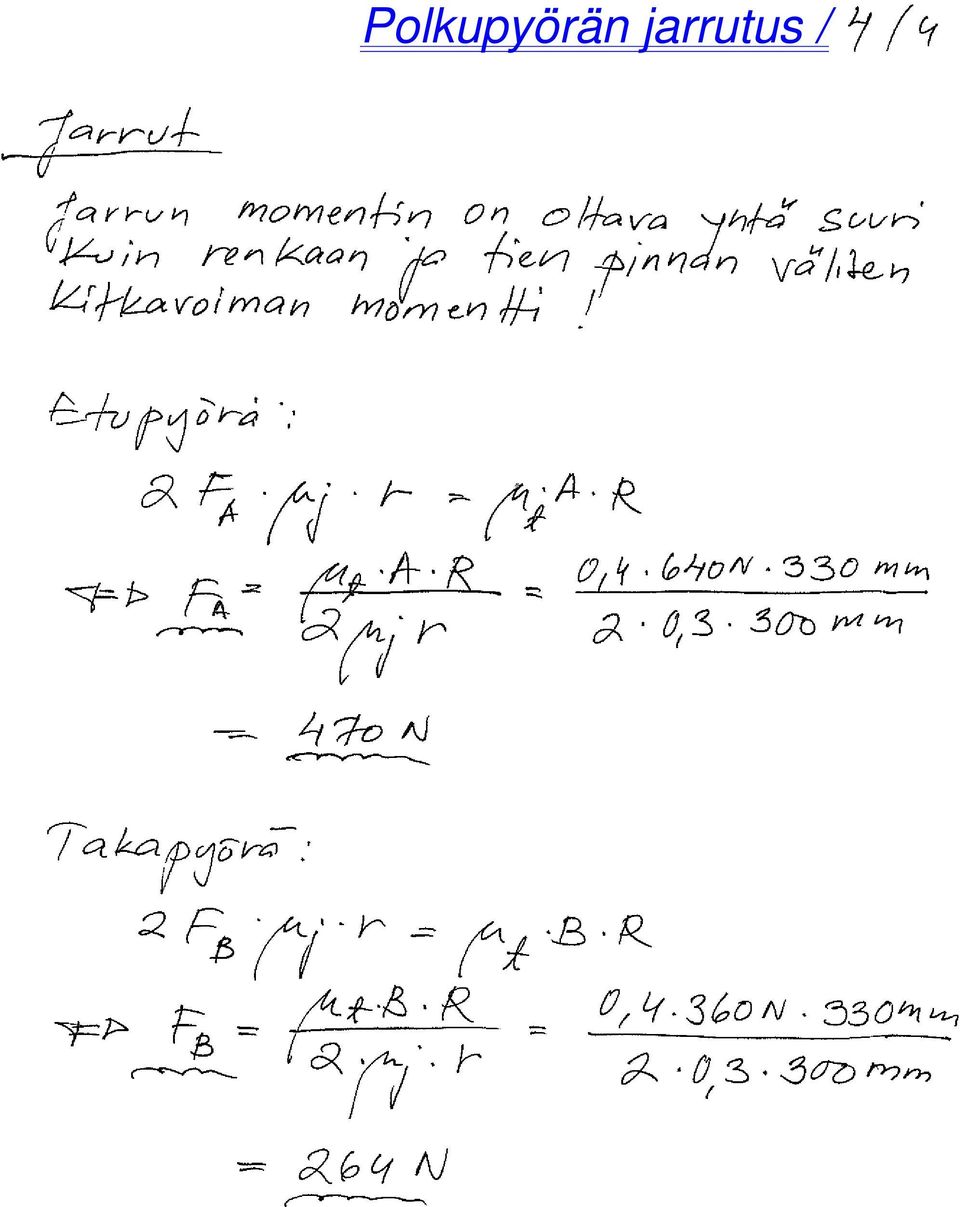 Polkupyörän jarrutus / 4 / 4
Jarrut
Jarrun momentin on oltava yhtä suuri
kuin renkaan ja tien pinnan välisen
kitkavoiman momentti !
Etupyörä :
2 F_A · μ_j · r = μ_t · A · R
<=> F_A = (μ_t · A · R) / (2 μ_j r) = (0,4 · 640 N · 330 mm) / (2 · 0,3 · 300 mm)
= 470 N
Takapyörä :
2 F_B · μ_j · r = μ_t · B · R
<=> F_B = (μ_t · B · R) / (2 · μ_j · r) = (0,4 · 360 N · 330 mm) / (2 · 0,3 · 300 mm)
= 264 N